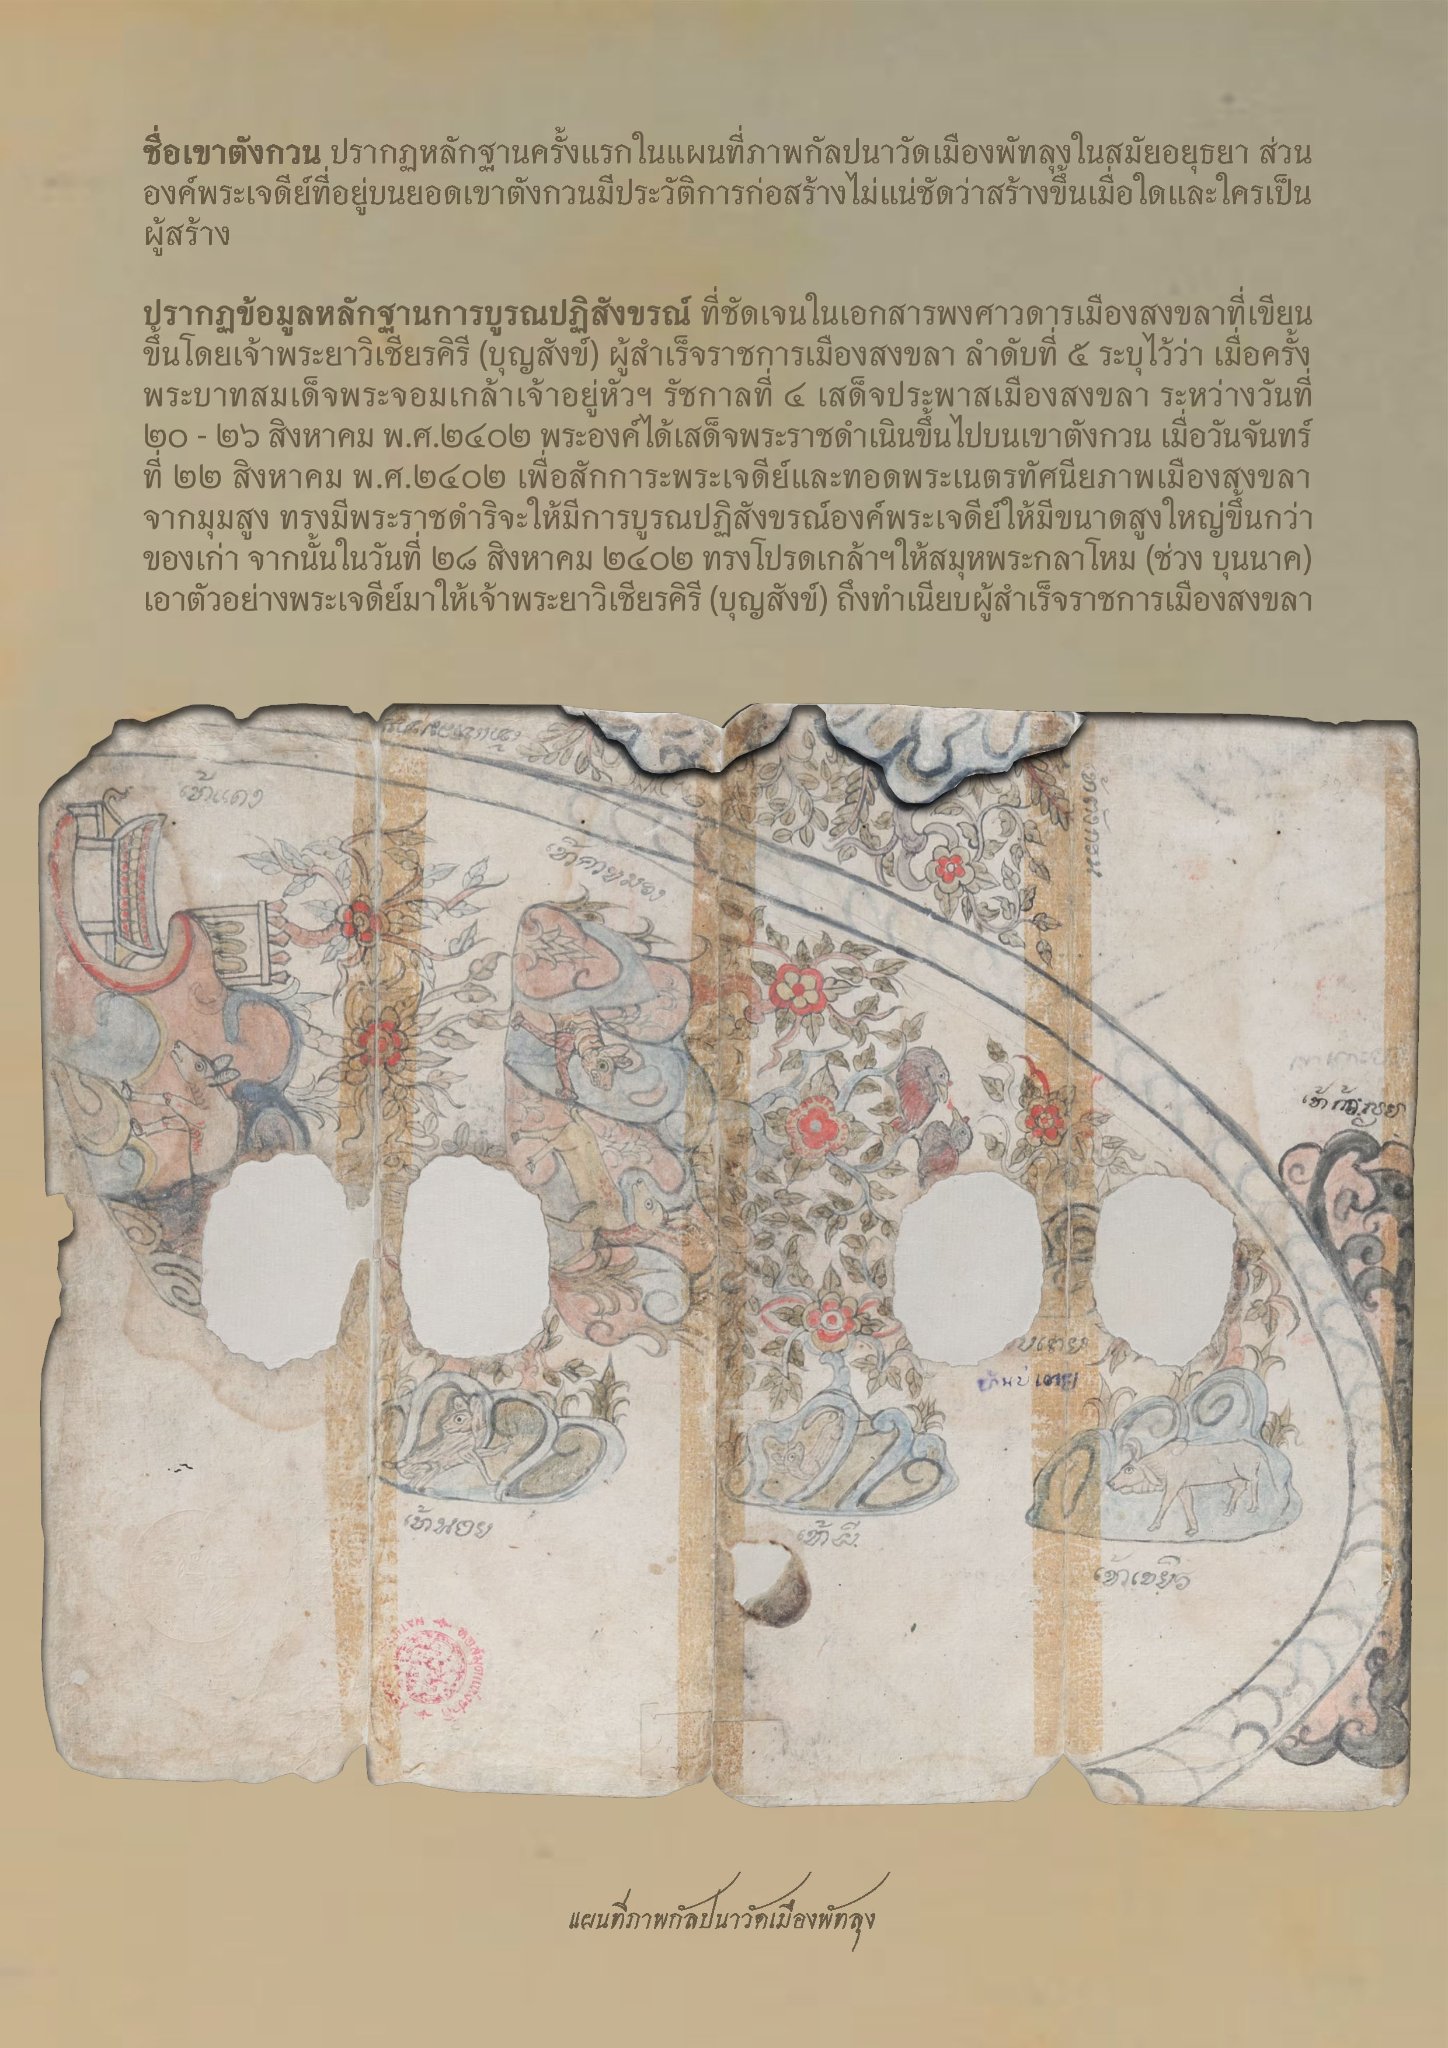 ชื่อเขาตังกวน ปรากฏหลักฐานครั้งแรกในแผนที่ภาพกัลปนาวัดเมืองพัทลุงในสมัยอยุธยา ส่วน
องค์พระเจดีย์ที่อยู่บนยอดเขาตังกวนมีประวัติการก่อสร้างไม่แน่ชัดว่าสร้างขึ้นเมื่อใดและใครเป็น
ผู้สร้าง
ปรากฏข้อมูลหลักฐานการบูรณปฏิสังขรณ์ ที่ชัดเจนในเอกสารพงศาวดารเมืองสงขลาที่เขียน
ขึ้นโดยเจ้าพระยาวิเชียรคิรี (บุญสังข์) ผู้สำเร็จราชการเมืองสงขลา ลำดับที่ ๕ ระบุไว้ว่า เมื่อครั้ง
พระบาทสมเด็จพระจอมเกล้าเจ้าอยู่หัวฯ รัชกาลที่ ๔ เสด็จประพาสเมืองสงขลา ระหว่างวันที่
๒๐ - ๒๖ สิงหาคม พ.ศ.๒๔๐๒ พระองค์ได้เสด็จพระราชดำเนินขึ้นไปบนเขาตังกวน เมื่อวันจันทร์
ที่ ๒๒ สิงหาคม พ.ศ.๒๔๐๒ เพื่อสักการะพระเจดีย์และทอดพระเนตรทัศนียภาพเมืองสงขลา
จากมุมสูง ทรงมีพระราชดำริจะให้มีการบูรณปฏิสังขรณ์องค์พระเจดีย์ให้มีขนาดสูงใหญ่ขึ้นกว่า
ของเก่า จากนั้นในวันที่ ๒๘ สิงหาคม ๒๔๐๒ ทรงโปรดเกล้าฯให้สมุหพระกลาโหม (ช่วง บุนนาค)
เอาตัวอย่างพระเจดีย์มาให้เจ้าพระยาวิเชียรคิรี (บุญสังข์) ถึงทำเนียบผู้สำเร็จราชการเมืองสงขลา
เข้าแดง
เข้าตังกวน
เข้าพี
เข้าเขยีว
แผนที่ภาพกัลปนาวัดเมืองพัทลุง